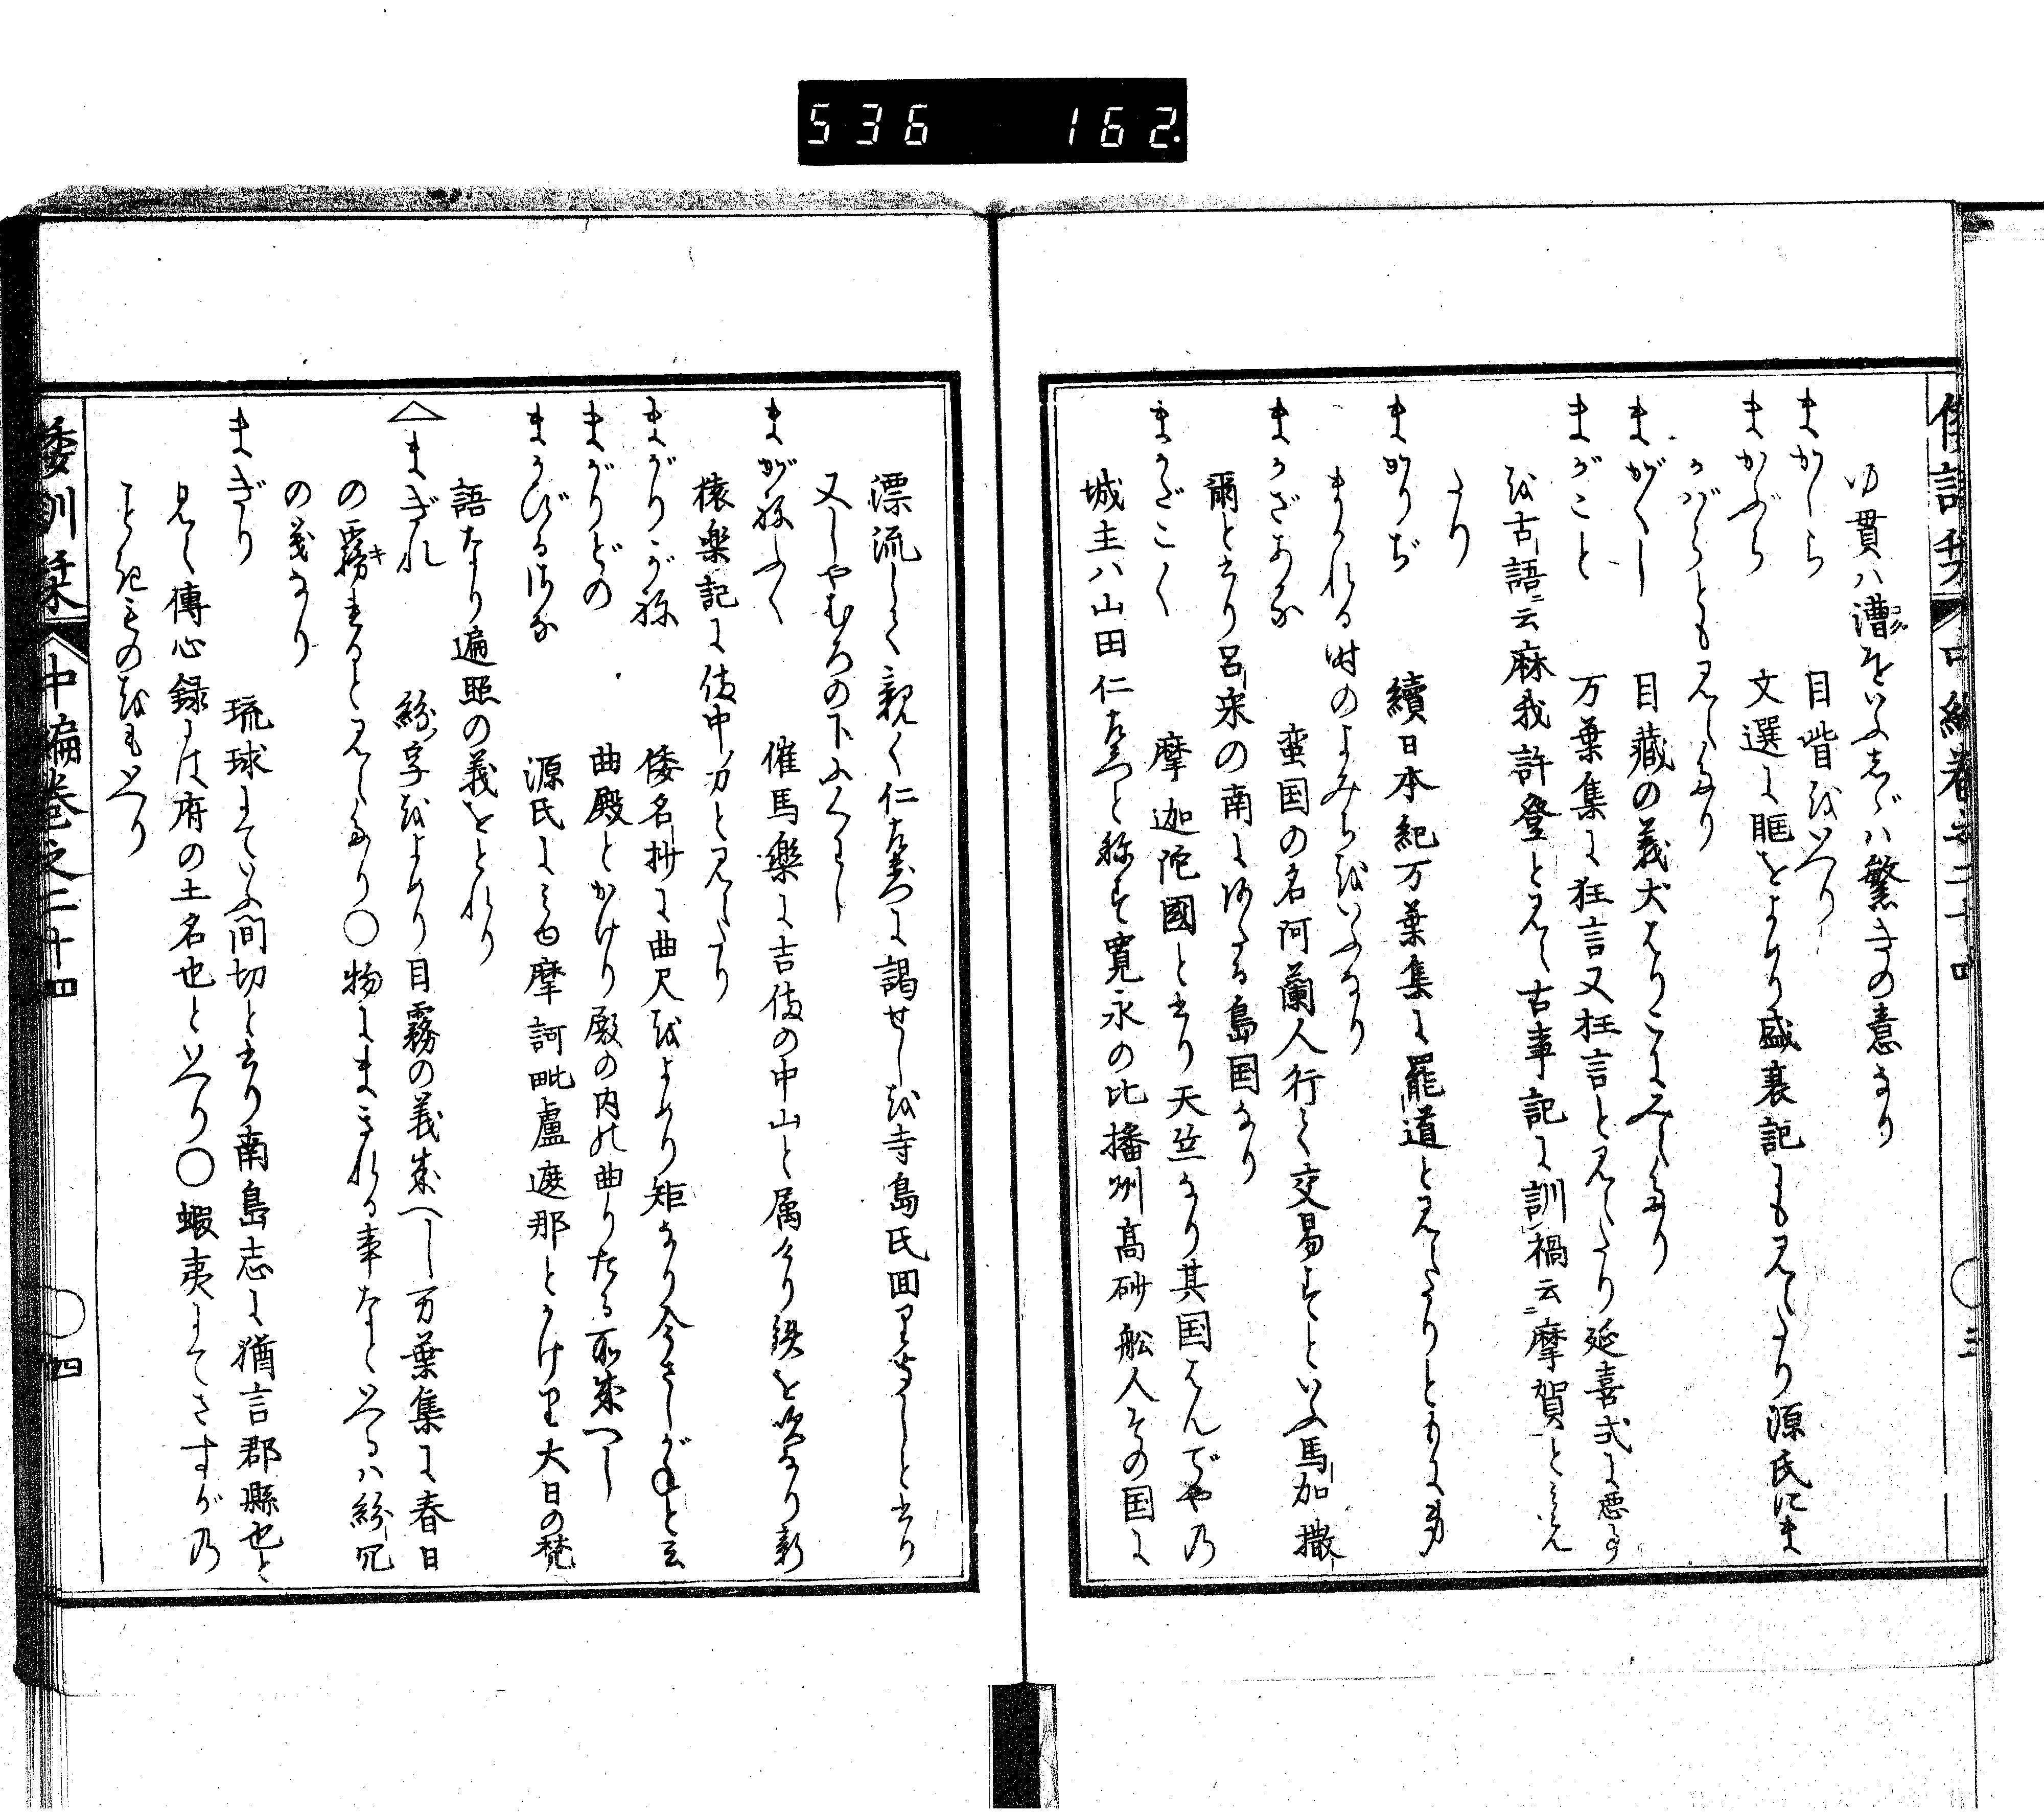 536 162
倭訓栞 中編巻之二十四 三
ゆ貫ハ漕をいふしゞハ繁きの意なり
まかしら 目眥をいへり
まかぶら 文選に眶をよめり盛衰記にも見えたり源氏にま
かぶらとも見えたり
まがくし 目蔵の義犬はりこにみえたり
まがこと 万葉集に狂言又枉言と見えたり延喜式に悪事
を古語ニ云麻我許登と見え古事記に訓禍云摩賀とみえ
たり
まかりぢ 續日本紀万葉集に罷道と見えたりともに身
まかれる時のよみちをいふなり
まかざある 蛮国の名阿蘭人行て交易すといふ馬加撒
爾と書り呂宋の南にある島国なり
まかだこく 摩迦陀國と書り天竺なり其国はんでや乃
城主ハ山田仁左衛門と称す寛永の比播州高砂舩人その国に
漂流して親く仁左衛門に謁せしを寺島氏囬り書しと書り
又しやむろの下にくはし
まがねふく 催馬樂に吉備の中山と属けり鉄を吹なり新
猿樂記に備中刀と見えたり
まがりがね 倭名抄に曲尺をよめり矩なり今さしがねと云
まがりどの 曲殿とかけり殿の内の曲りたる所成へし
まかびるさな 源氏にみゆ摩訶毗盧遮那とかけり大日の梵
語なり遍照の義をとれり
△まぎれ 紛字をよめり目霧の義成へし万葉集に春日
の霧キれると見えたり〇物にまきれる事なといへるハ紛冗
の義なり
まぎり 琉球にていふ間切と書り南島志に猶言郡縣也と
見え傳心録には府の土名也といへり〇蝦夷にてさすが乃
ことたものをもいへり
倭訓栞 中編巻之二十四 四